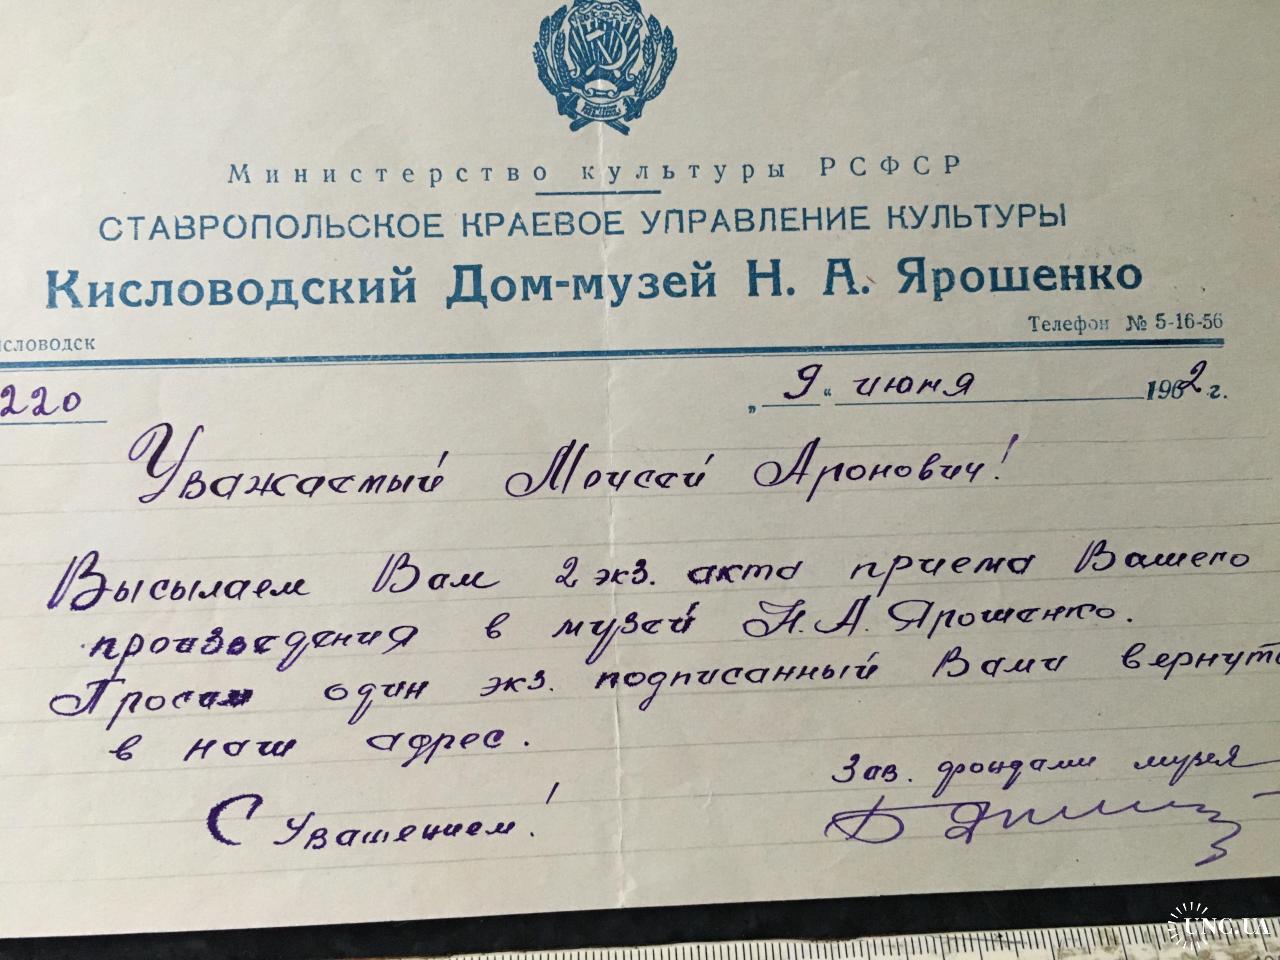 Министерство культуры РСФСР
СТАВРОПОЛЬСКОЕ КРАЕВОЕ УПРАВЛЕНИЕ КУЛЬТУРЫ
Кисловодский Дом-музей Н. А. Ярошенко
Телефон № 5-16-56
словодск
220
„ 9 “ июня 1962 г.
Уважаемый Моисей Аронович!
Высылаем Вам 2 экз. акта приема Вашего
произведения в музей Н. А. Ярошенко.
Просим один экз. подписанный Вами вернуть
в наш адрес.
Зав. фондами музея
С Уважением!
UNC.UA